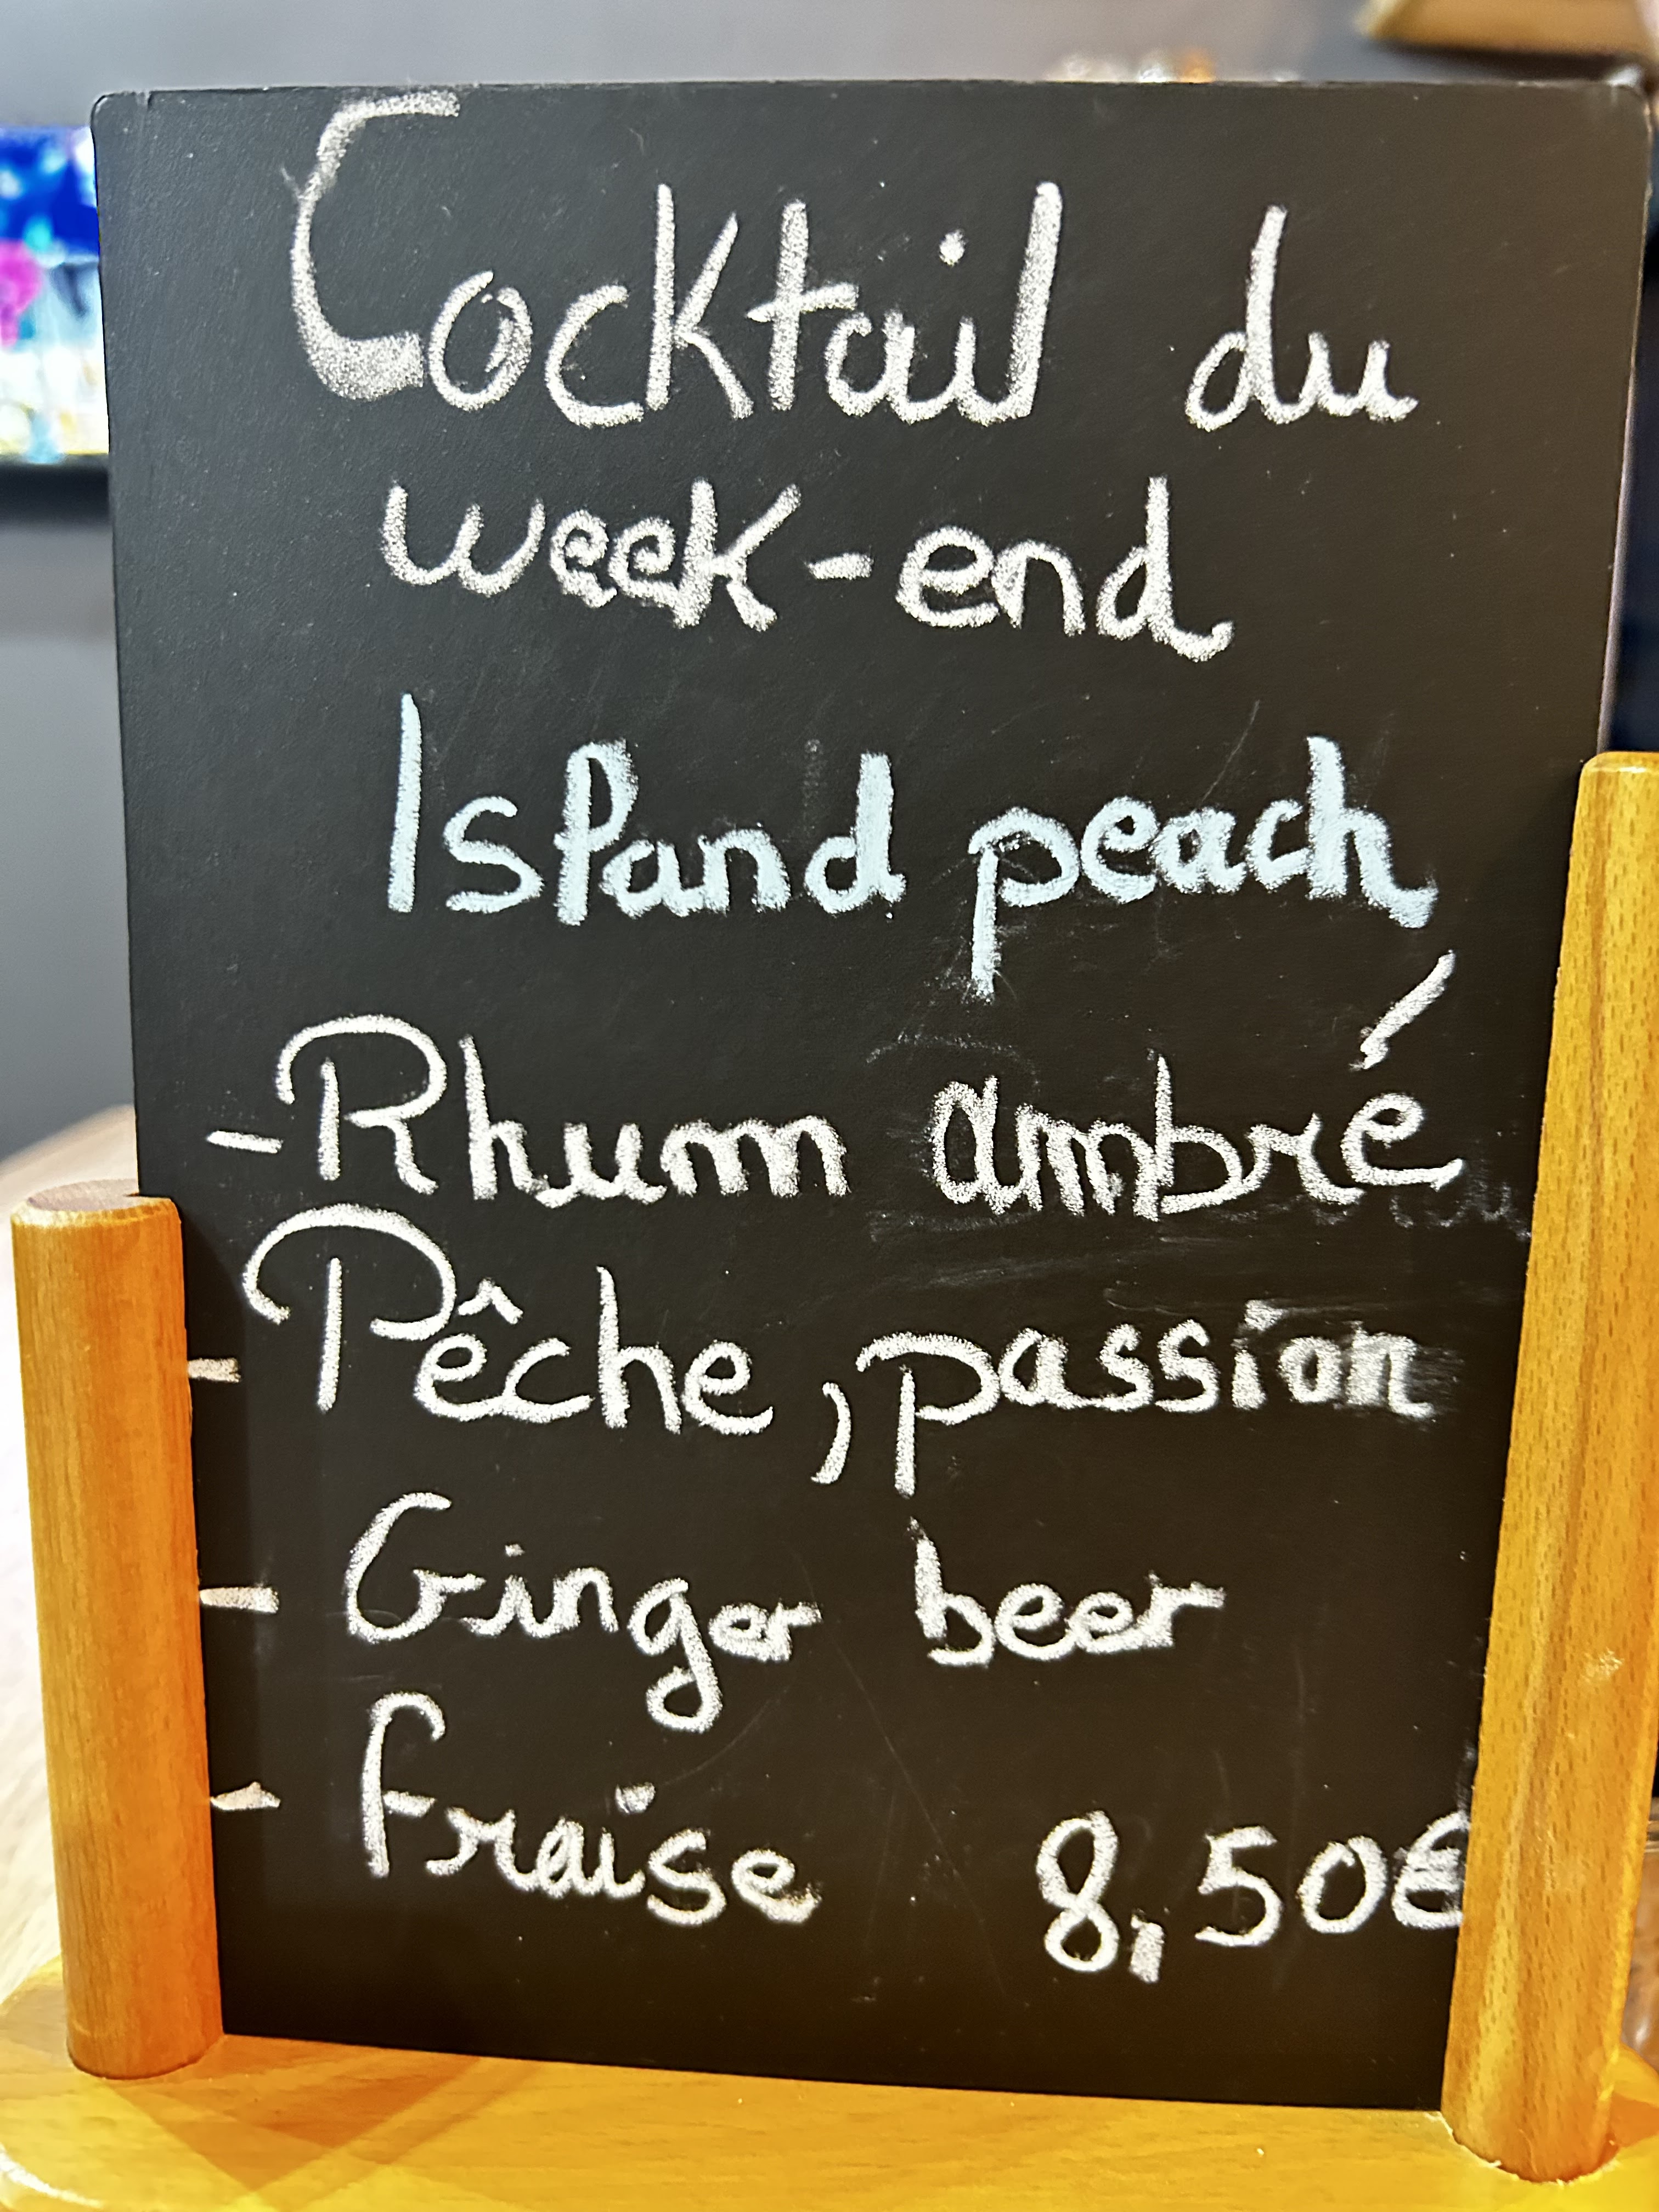 Cocktail du
week-end
Island peach
- Rhum ambré
- Pêche, passion
- Ginger beer
- Fraise 8,50€